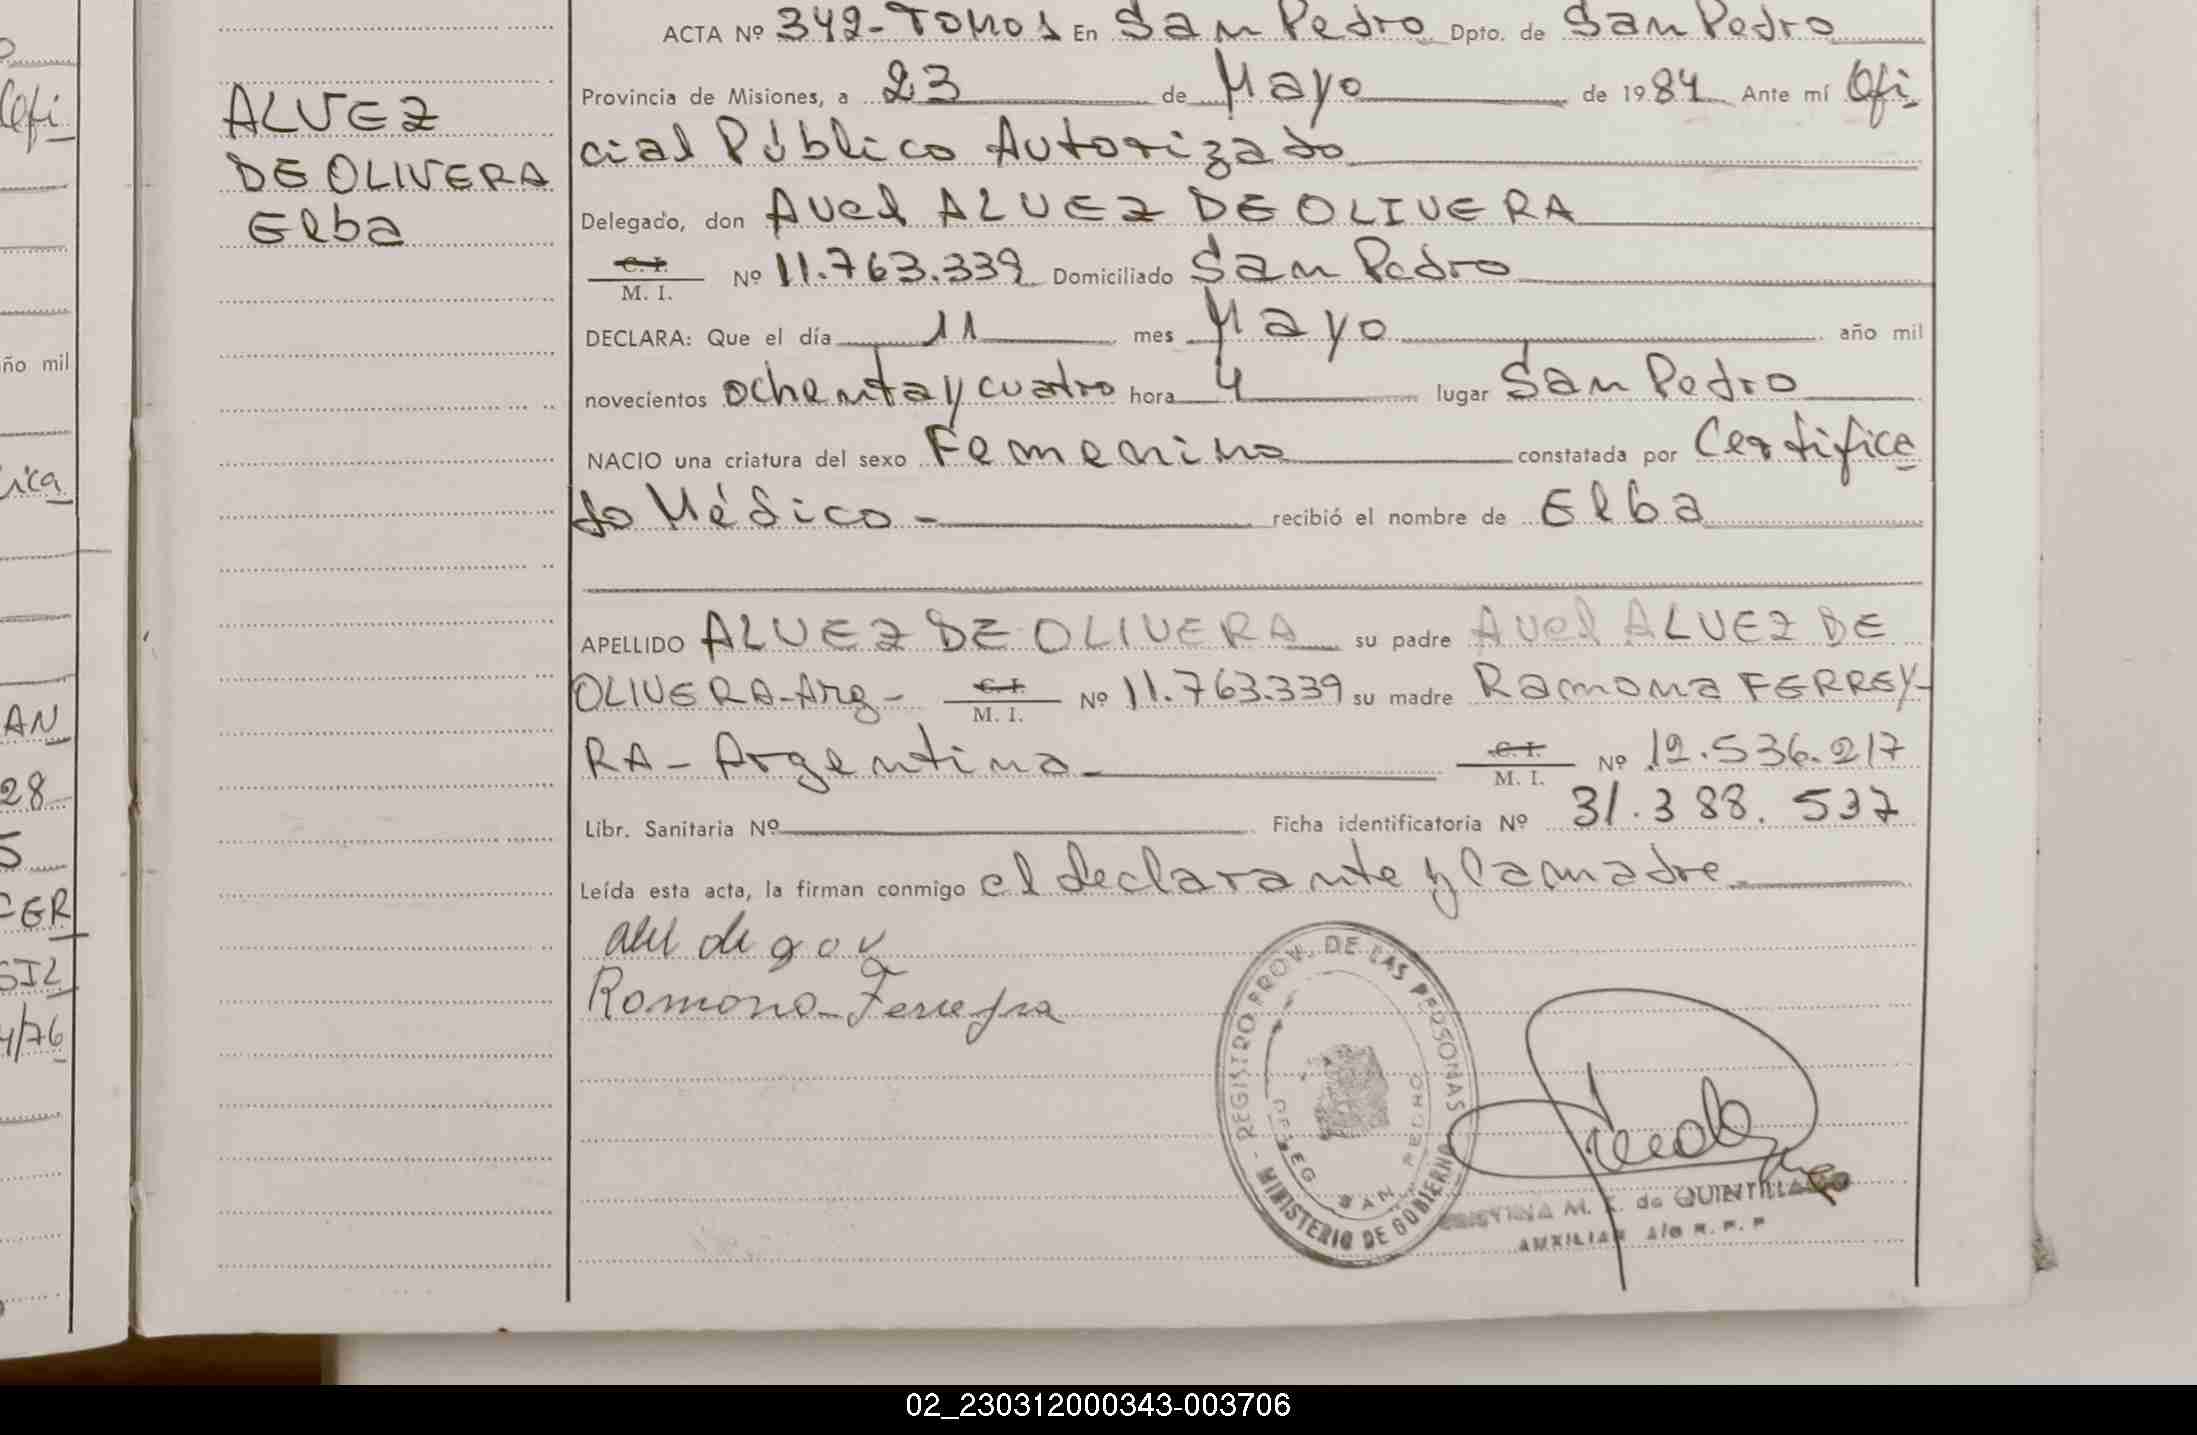 ALVEZ
DE OLIVERA
Elba
ACTA Nº 342-Tomo 1 En San Pedro Dpto. de San Pedro
Provincia de Misiones, a 23 de Mayo de 1984 Ante mí Ofi
cial Público Autorizado
Delegado, don Avel ALVEZ DE OLIVERA
C. I.
M. I. Nº 11.763.339 Domiciliado San Pedro
DECLARA: Que el día 11 mes Mayo año mil
novecientos ochenta y cuatro hora 4 lugar San Pedro
NACIO una criatura del sexo Femenino constatada por Certifica
do Médico - recibió el nombre de Elba
APELLIDO ALVEZ DE OLIVERA su padre Avel ALVEZ DE
OLIVERA-Arg- C. I. M. I. Nº 11.763.339 su madre Ramona FERREY-
RA - Argentina - C. I. M. I. Nº 12.536.217
Libr. Sanitaria Nº Ficha identificatoria Nº 31.388.537
Leída esta acta, la firman conmigo el declarante y la madre
Ramona Ferreyra
REGISTRO PROV. DE LAS PERSONAS
- MINISTERIO DE GOBIERNO
SAN PEDRO
CRISTINA M. de QUINTILLA
AUXILIAR A/C R. P. P
ño mil
ica
AN
28
5
FER
SIL
4/76
02_230312000343-003706